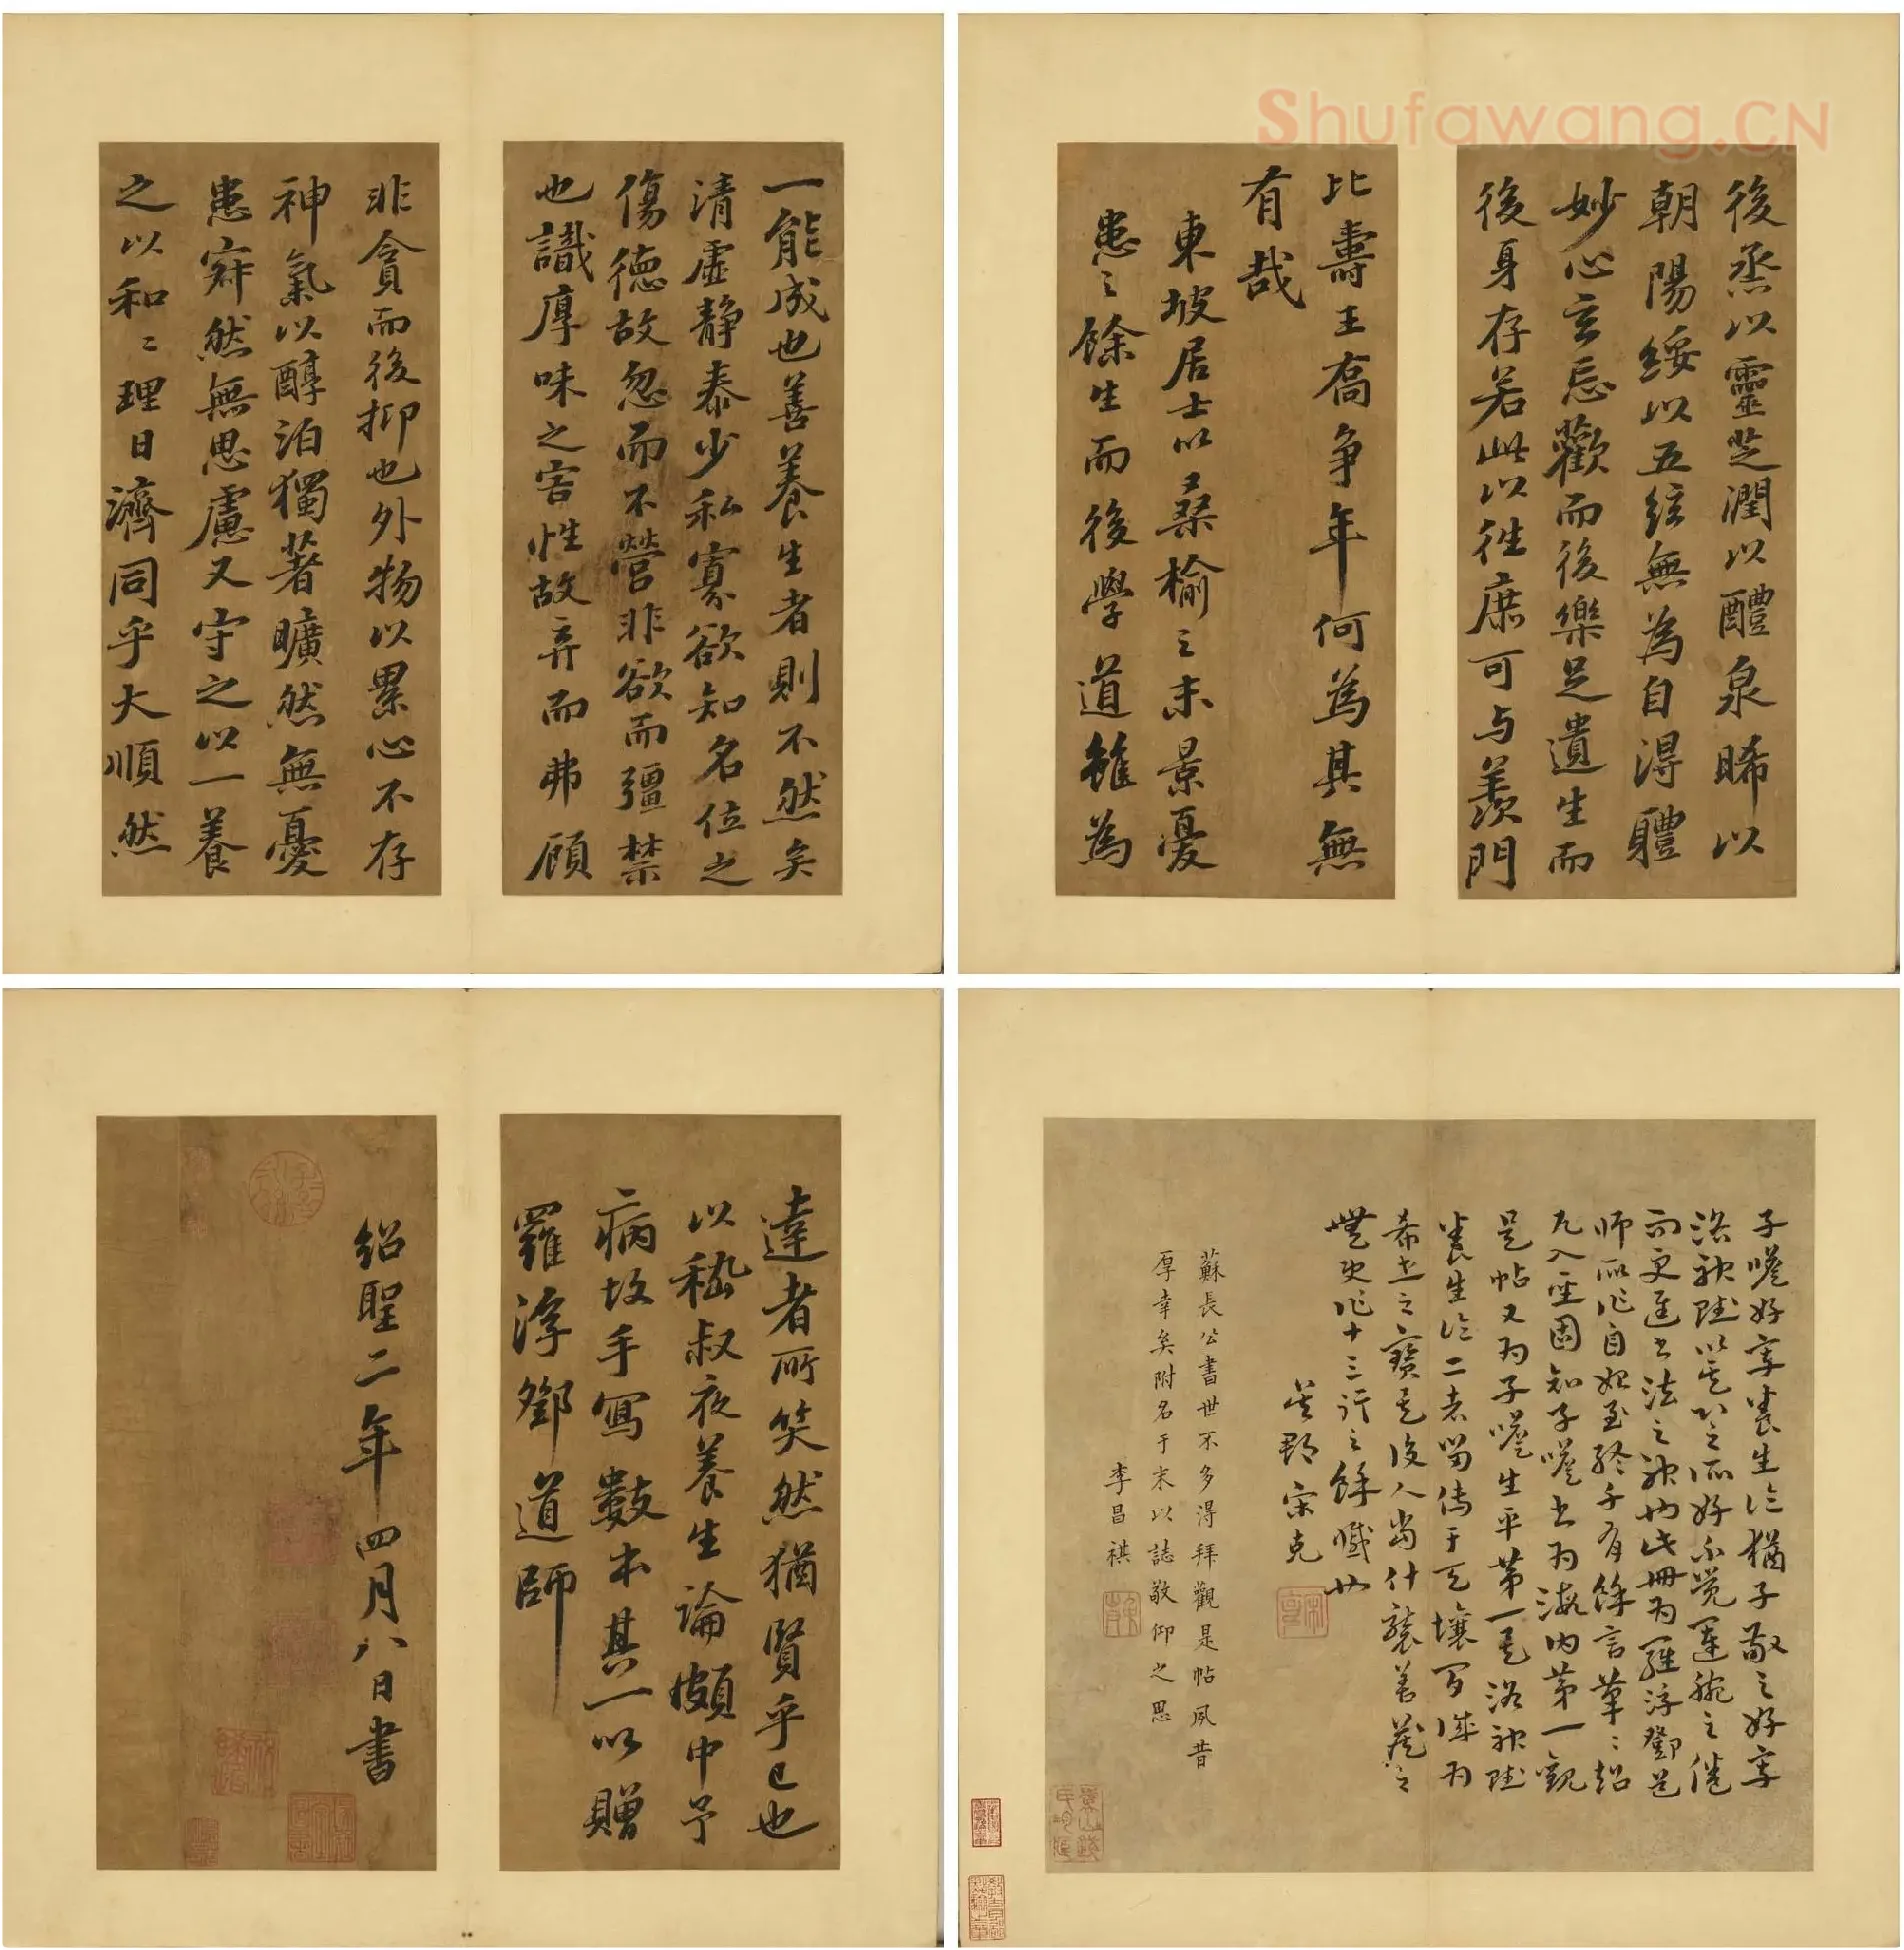 一能成也善養生者則不然矣
清虛静泰少私寡欲知名位之
傷德故忽而不營非欲而彊禁
也識厚味之害性故弃而弗顧
非貪而後抑也外物以累心不存
神氣以醇泊獨著曠然無憂
患寂然無思慮又守之以一養
之以和〻理日濟同乎大順然
Shufawang.CN
後烝以靈芝潤以醴泉晞以
朝陽綏以五絃無為自得體
妙心玄忘歡而後樂足遺生而
後身存若此以往庶可与羨門
比壽王喬争年何為其無
有哉
東坡居士以桑榆之末景憂
患之餘生而後學道雖為
達者所笑然猶賢乎已也
以嵇叔夜養生論頗中予
病故手寫數本其一以贈
羅浮鄧道師
紹聖二年四月八日書
子瞻好寫養生論猶子敬之好寫
洛神賦以其心之所好不覺運腕之倦
而更進書法之神也此冊為羅浮鄧道
師所作自始至終千有餘言筆〻超
凡入聖固知子瞻書為海內第一觀
是帖又為子瞻生平第一是洛神賦
養生論二者留傳于天壤間誠為
希世之寶是後人當什襲善藏之
無更作十三行之餘憾也
吴郡宋克
蘇長公書世不多得拜觀是帖夙昔
厚幸矣附名于末以誌敬仰之思
李昌祺